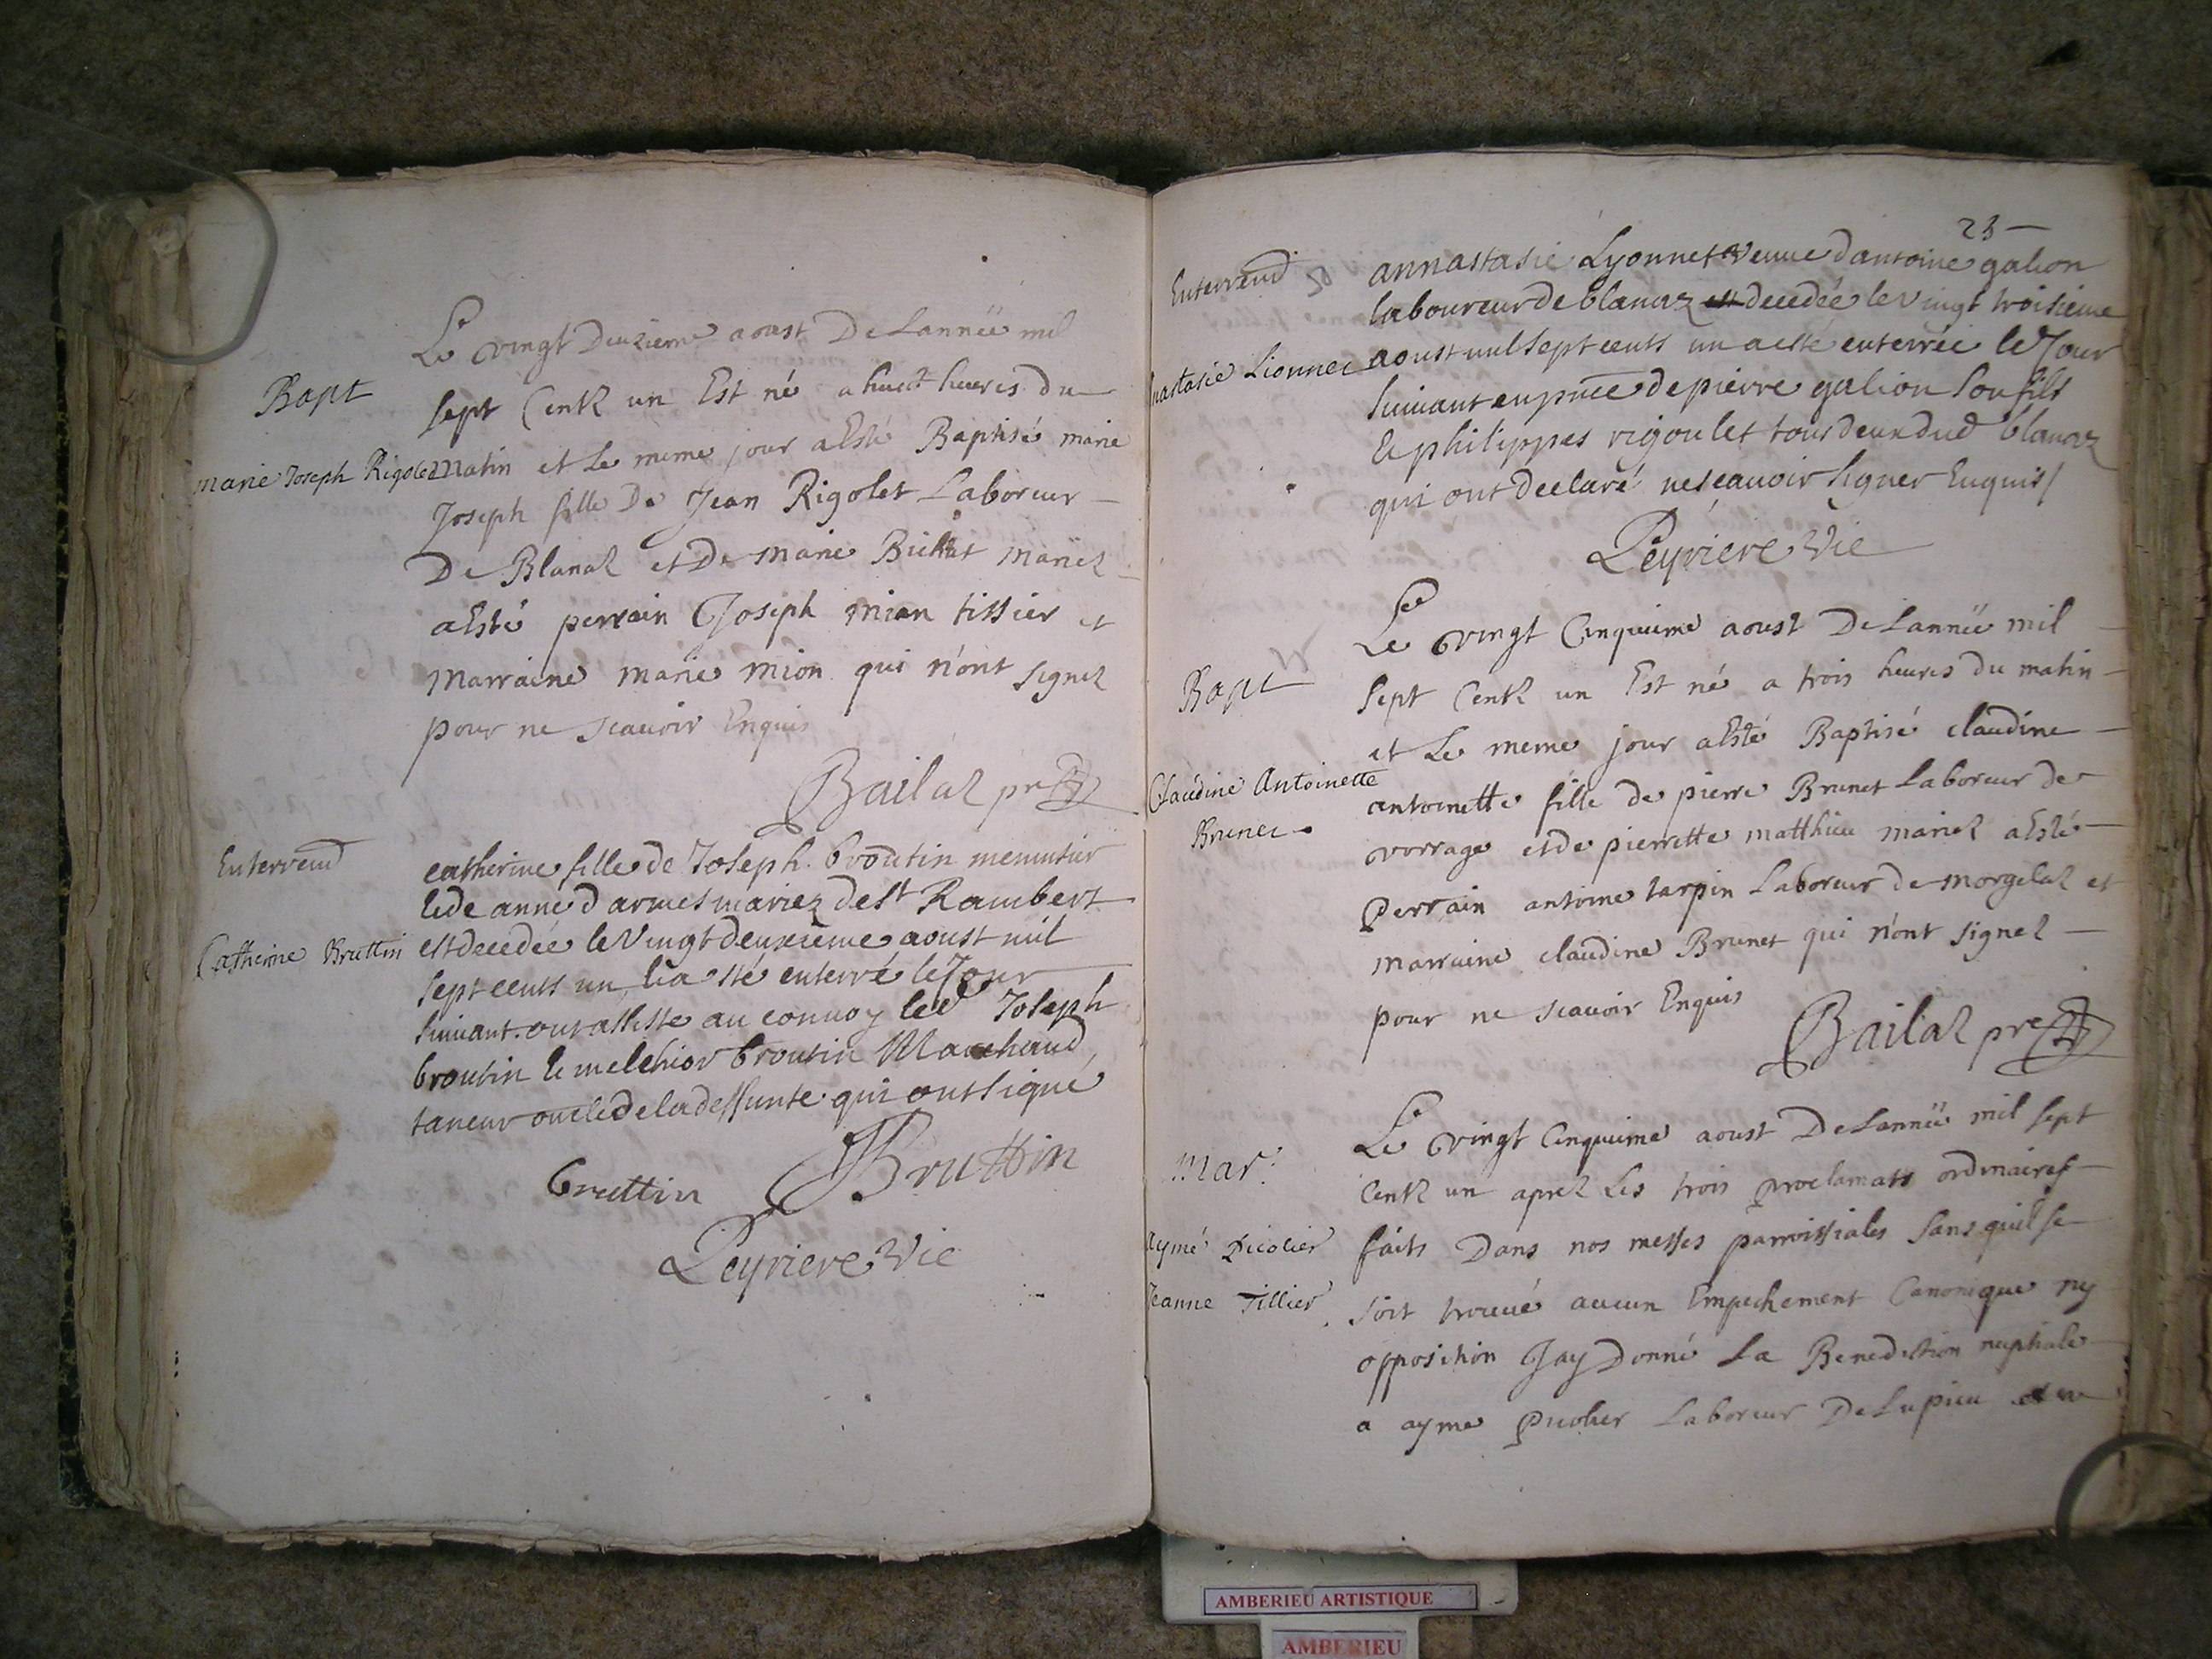 Le vingt Deuxieme aoust De Lannee mil
Bapt
sept Centz un Est né a huict heures du
marie Joseph Rigolet
matin et Le meme jour aEsté Baptisé marie
Joseph fille De Jean Rigolet Laboreur
De Blanaz et De marie mariez
aEsté perrain Joseph mion tissier et
marraine marie mion qui n'ont signez
pour ne scauoir Enquis
Bailaz pre
Enterremt
catherine fille de Joseph broutin menusier
et de anne d'armes mariez de St Rambert
Catherine Bruttin
est decedée le Vingt deuxieme aoust mil
sept cents un et a esté enterré le Jour
suiuant ont assiste au conuoy led Joseph
broutin et melchior broutin Marchand
taneur oncle de la deffunte qui ont signé
bruttin JBruttin
Peyriere Vic
23
Enterremt
annastasie Lyonnet veuue dantoine galion
laboureur de blanaz est decedée le vingt troisieme
Anastasie Lionnet
aoust mil sept cents un a esté enterrée le Jour
suiuant en pnce de pierre galion son fils
et philippes rigoulet tous deux dud blanaz
qui ont declaré ne scauoir signer Enquis
Peyriere Vic
Le vingt Cinquieme aoust De Lannee mil
Bapt
sept Centz un Est né a trois heures du matin
et Le meme jour aEsté Baptisé claudine
Claudine Antoinette
Brunet
antoinette fille de pierre Brunet Laboreur de
vorrage et de pierrette matthieu mariez aEsté
perrain antoine tarpin Laboreur de morgelaz et
marraine claudine Brunet qui n'ont signez
pour ne scauoir Enquis
Bailaz pre
Le vingt Cinquieme aoust De Lannee mil sept
Mar.
Centz un aprez Les trois proclamats ordinaires
Aymé Picolier
faits Dans nos messes parroissiales sans quil se
Jeanne Tillier
soit trouué aucun Empechement Canonique ny
opposition Jay Donné La Benediction nuptiale
a ayme picolier Laboreur De Lupieu
AMBERIEU ARTISTIQUE
AMBERIEU